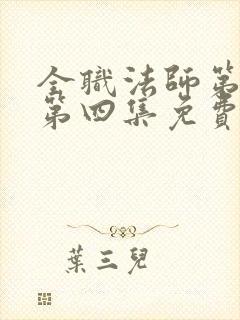 全職法師第
第四集免費
葉三兒